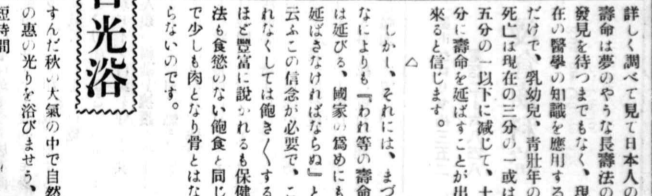 詳しく調べて見て日本人の
壽命は夢のやうな長壽法の
發見を待つまでもなく、現
在の醫學の知識を應用する
だけで、乳幼兒、靑壯年の
死亡は現在の三分の一或は
五分の一以下に減じて、十
分に壽命を延ばすことが出
來ると信じます。
△
しかし、それには、まづ
なによりも『われ等の壽命
は延びる、國家の爲めにも
延ばさなければならぬ』と
云ふこの信念が必要で、こ
れなくしては飽き〱する
ほど豐富に說かれるも保健
法も食慾のない飽食と同じ
で少しも肉となり骨とはな
らないのです。
光浴
すんだ秋の大氣の中で自然
の惠の光りを浴びませう、
短時間